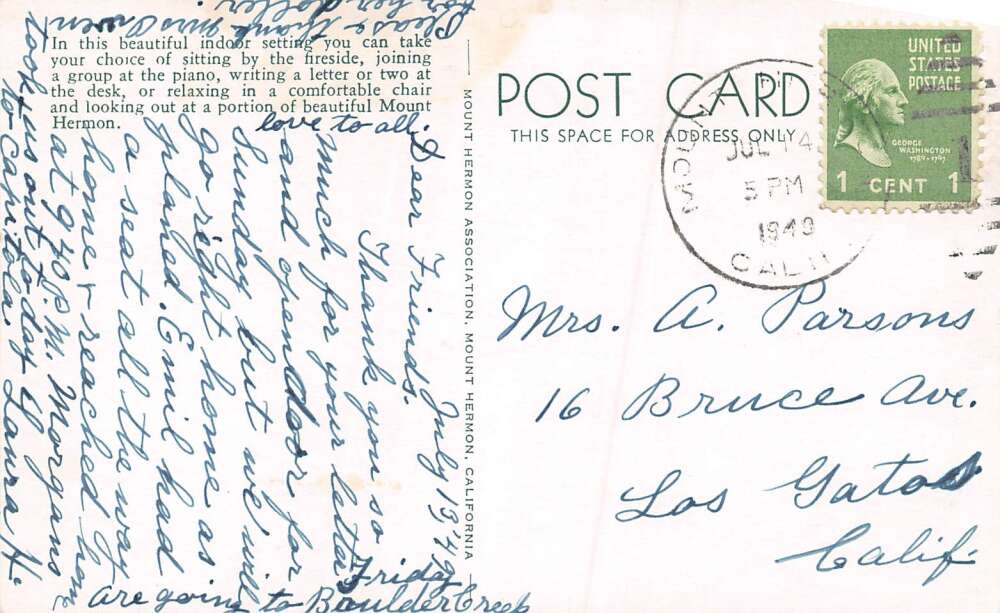 In this beautiful indoor setting you can take
your choice of sitting by the fireside, joining
a group at the piano, writing a letter or two at
the desk, or relaxing in a comfortable chair
and looking out at a portion of beautiful Mount
Hermon.
MOUNT HERMON ASSOCIATION, MOUNT HERMON, CALIFORNIA
POST CARD
THIS SPACE FOR ADDRESS ONLY
UNITED
STATES
POSTAGE
GEORGE
WASHINGTON
1789-1797
1 CENT 1
MOUNT
JUL 14
5 PM
1949
CALIF
Mrs. A. Parsons
16 Bruce Ave.
Los Gatos
Calif.
July 13 '49
Dear Friends.
Thank you so
much for your letter
and open door for
Sunday but we will
go right home as
planed. Emil had
a seat all the way
home & reached home
at 9 40 P.M. Morgans
took us out today
to Capitola. Laura H.
Friday
are going to Boulder Creek
love to all.
Please thank Mrs Owen
for her letter.